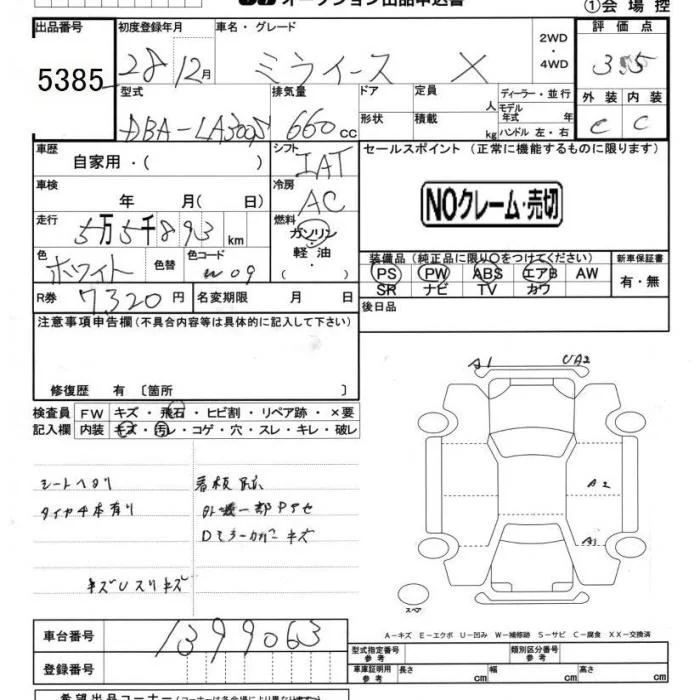 オークション出品申込書
①会場控
出品番号 初度登録年月 車名・グレード 評価点
5385 28 12月 ミライース X 2WD・4WD 3.5
型式 排気量 ドア 定員 人 ディーラー・並行 外装 内装
DBA-LA300S 660cc 形状 積載 kg モデル年式 年 ハンドル 左・右 C C
車歴 自家用・( ) シフト IAT セールスポイント (正常に機能するものに限ります)
車検 年 月( 日) 冷房 AC NOクレーム・売切
走行 5万5千893km 燃料 ガソリン・軽油・( )
色 ホワイト 色替 色コード W09 装備品(純正品に限り〇をつけてください) 新車保証書
PS PW ABS エアB AW 有・無
SR ナビ TV カワ
R券 7320円 名変期限 月 日 後日品
注意事項申告欄(不具合内容等は具体的に記入して下さい)
修復歴 有 〔箇所 〕
検査員 FW キズ・飛石・ヒビ割・リペア跡・×要
記入欄 内装 キズ・汚レ・コゲ・穴・スレ・キレ・破レ
A1 UA2
シートヘタリ 看板跡
タイヤ4本有り 外装一部Pアセ
A2
Dミラーカバーキズ
A1
キズUスリキズ
スペア
A-キズ E-エクボ U-凹み W-補修跡 S-サビ C-腐食 XX-交換済
車台番号 1399063 型式指定番号 参考 類別区分番号 参考
登録番号 車庫証明用 参考 長さ cm 幅 cm 高さ cm
希望出品コーナー(コーナーは各会場により異なります)